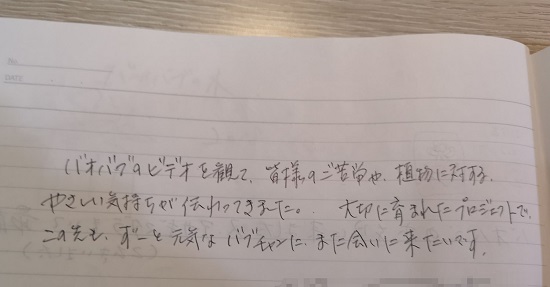 No.
DATE
バオバブのビデオを観て、皆様のご苦労や、植物に対する、
やさしい気持ちが伝わってきました。 大切に育まれたプロジェクトで、
この先も、ずーと元気な バブチャンに、また会いに来たいです。